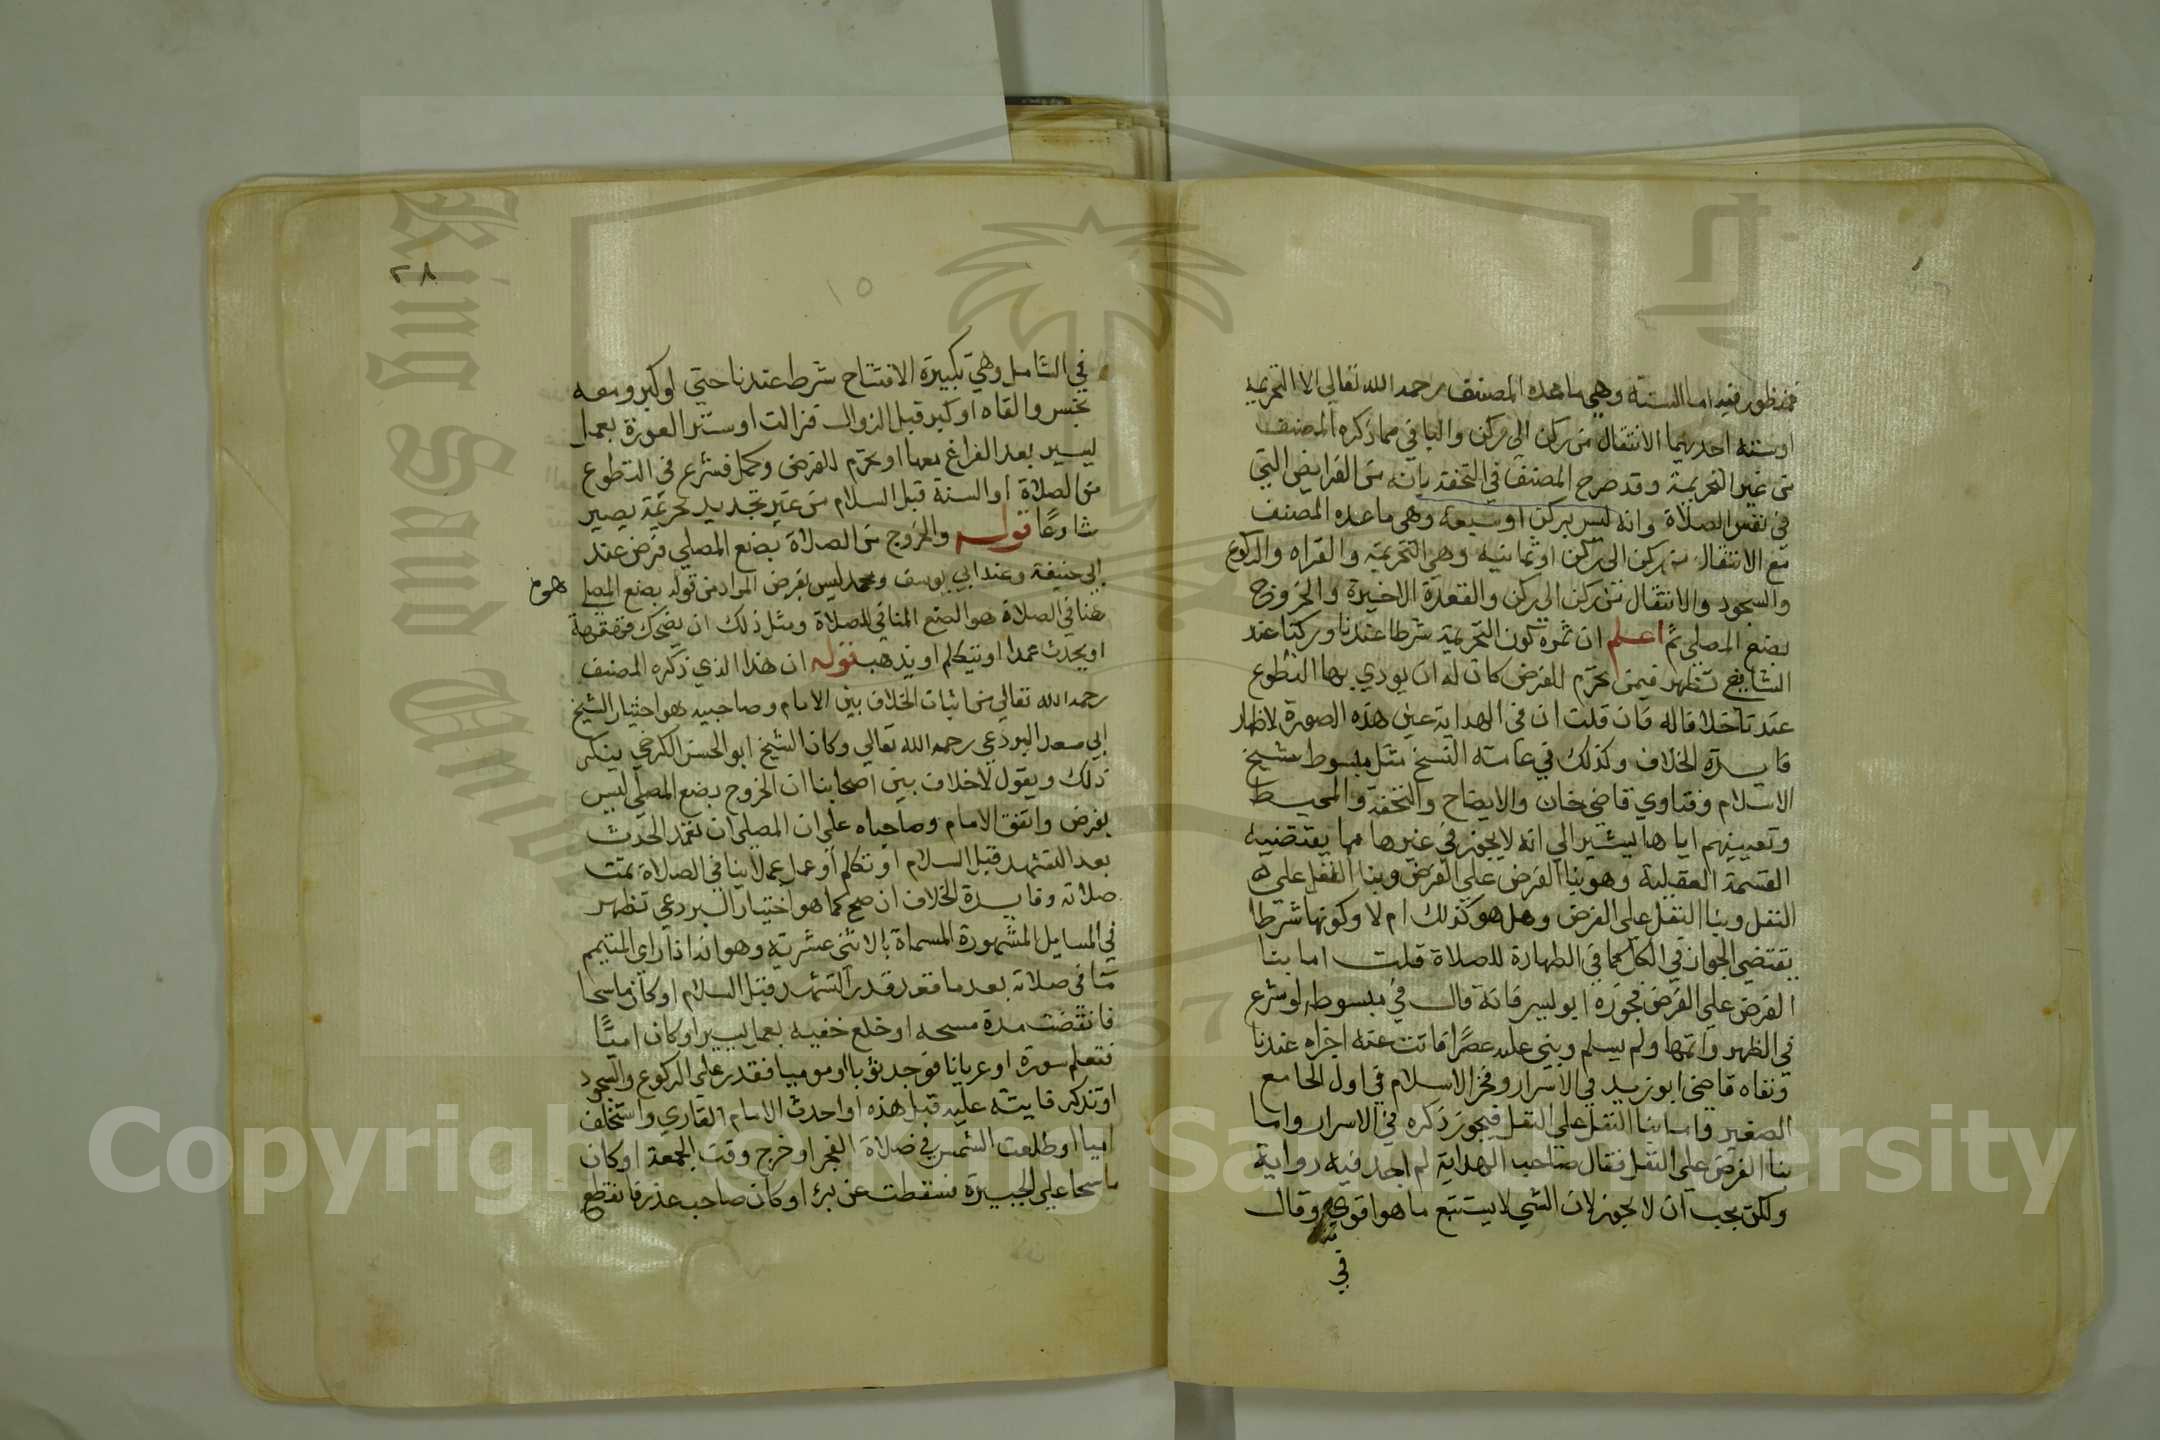 فيه اما الستة وهي ما عده المصنف رحمه الله تعالى الا التحريمة
او ستة احديهما الانتقال من ركن الي ركن والباقي مما ذكره المصنف
من غير التحريمة وقد صرح المصنف في التحفة بانه من الفرايض التي
في نفس الصلاة وانه ليس بركن او سبعة وهي ما عده المصنف
مع الانتقال من ركن الى ركن او ثمانية وهي التحريمة والقراه والركوع
والسجود والانتقال من ركن الى ركن والقعدة الاخيرة والخروج
بصنع المصلي ثم اعلم ان ثمرة كون التحريمة شرطا عندنا وركنا عند
الشافعي تظهر فيمن تحرم للفرض كان له ان يودي بها التطوع
عندنا خلافا له فان قلت ان في الهداية عين هذه الصورة لاظهار
فايدة الخلاف وكذلك في عامة النسخ مثل مبسوط شيخ
الاسلام وفتاوي قاضي خان والايضاح والتحفة والمحيط
وتعيينهم اياها يشير الي انه لا يجوز في غيرها مما يقتضيه
القسمة العقلية وهو بنا الفرض علي الفرض وبنا النفل علي
النفل وبنا النفل على الفرض وهل هو كذلك ام لا وكونها شرطا
يقتضي الجواز في الكل كما في الطهارة للصلاة قلت اما بنا
الفرض علي الفرض فجوزه ابو ليسر فانه قال في مبسوطه لو شرع
في الظهر واتمها ولم يسلم وبني عليه عصرا فاتت عنه اجزاه عندنا
ونفاه قاضي ابو زيد في الاسرار وفخر الاسلام في اول الجامع
الصغير واما بنا النفل على النفل فيجوز ذكره في الاسرار واما
بنا الفرض علي النفل فقال صاحب الهداية لم اجد فيه رواية
ولكن يجب ان لا يجوز لان الشي لا يستتبع ما هو اقوي وقال
في
٢٨
١٥
في الشامل وهي تكبيرة الافتتاح شرط عندنا حتي لو كبر ومعه
نجس والقاه او كبر قبل الزوال فزالت او ستر العورة بعمل
يسير بعد الفراغ معها او تحرم للفرض وكمل فشرع في التطوع
من الصلاة او السنة قبل السلام من غير تجديد تحريمة يصير
شارعا قوله والخروج من الصلاة بصنع المصلي فرض عند
ابي حنيفة وعند ابي يوسف ومحمد ليس بفرض المراد من قوله بصنع المصلي
هنا في الصلاة هو الصنع المنافي للصلاة ومثل ذلك ان يضحك قهقهة
او يحدث عمدا او يتكلم او يذهب قوله ان هذا الذي ذكره المصنف
رحمه الله تعالي من اثبات الخلاف بين الامام وصاحبيه هو اختيار الشيخ
ابي سعد البردعي رحمه الله تعالي وكان الشيخ ابو الحسن الكرخي ينكر
ذلك ويقول لا خلاف بين اصحابنا ان الخروج بصنع المصلي ليس
بفرض واتفق الامام وصاحباه علي ان المصلي ان تعمد الحدث
بعد التشهد قبل السلام او تكلم او عمل عملا ينافي الصلاة تمت
صلاته وفايدة الخلاف ان صح كما هو اختيار البردعي تظهر
في المسايل المشهورة المسماة بالاثني عشرية وهو انه اذا راي المتيمم
ما في صلاته بعد ما قعد قدر التشهد قبل السلام او كان ماسحا
فانقضت مدة مسحه او خلع خفيه بعمل يسير او كان اميا
فتعلم سورة او عريانا فوجد ثوبا او موميا فقدر علي الركوع والسجود
او تذكر فايتة عليه قبل هذه او احدث الامام القاري واستخلف
اميا او طلعت الشمس في صلاة الفجر او خرج وقت الجمعة او كان
ماسحا علي الجبيرة فسقطت عن برء او كان صاحب عذر فانقطع
Copyright © King Saud University